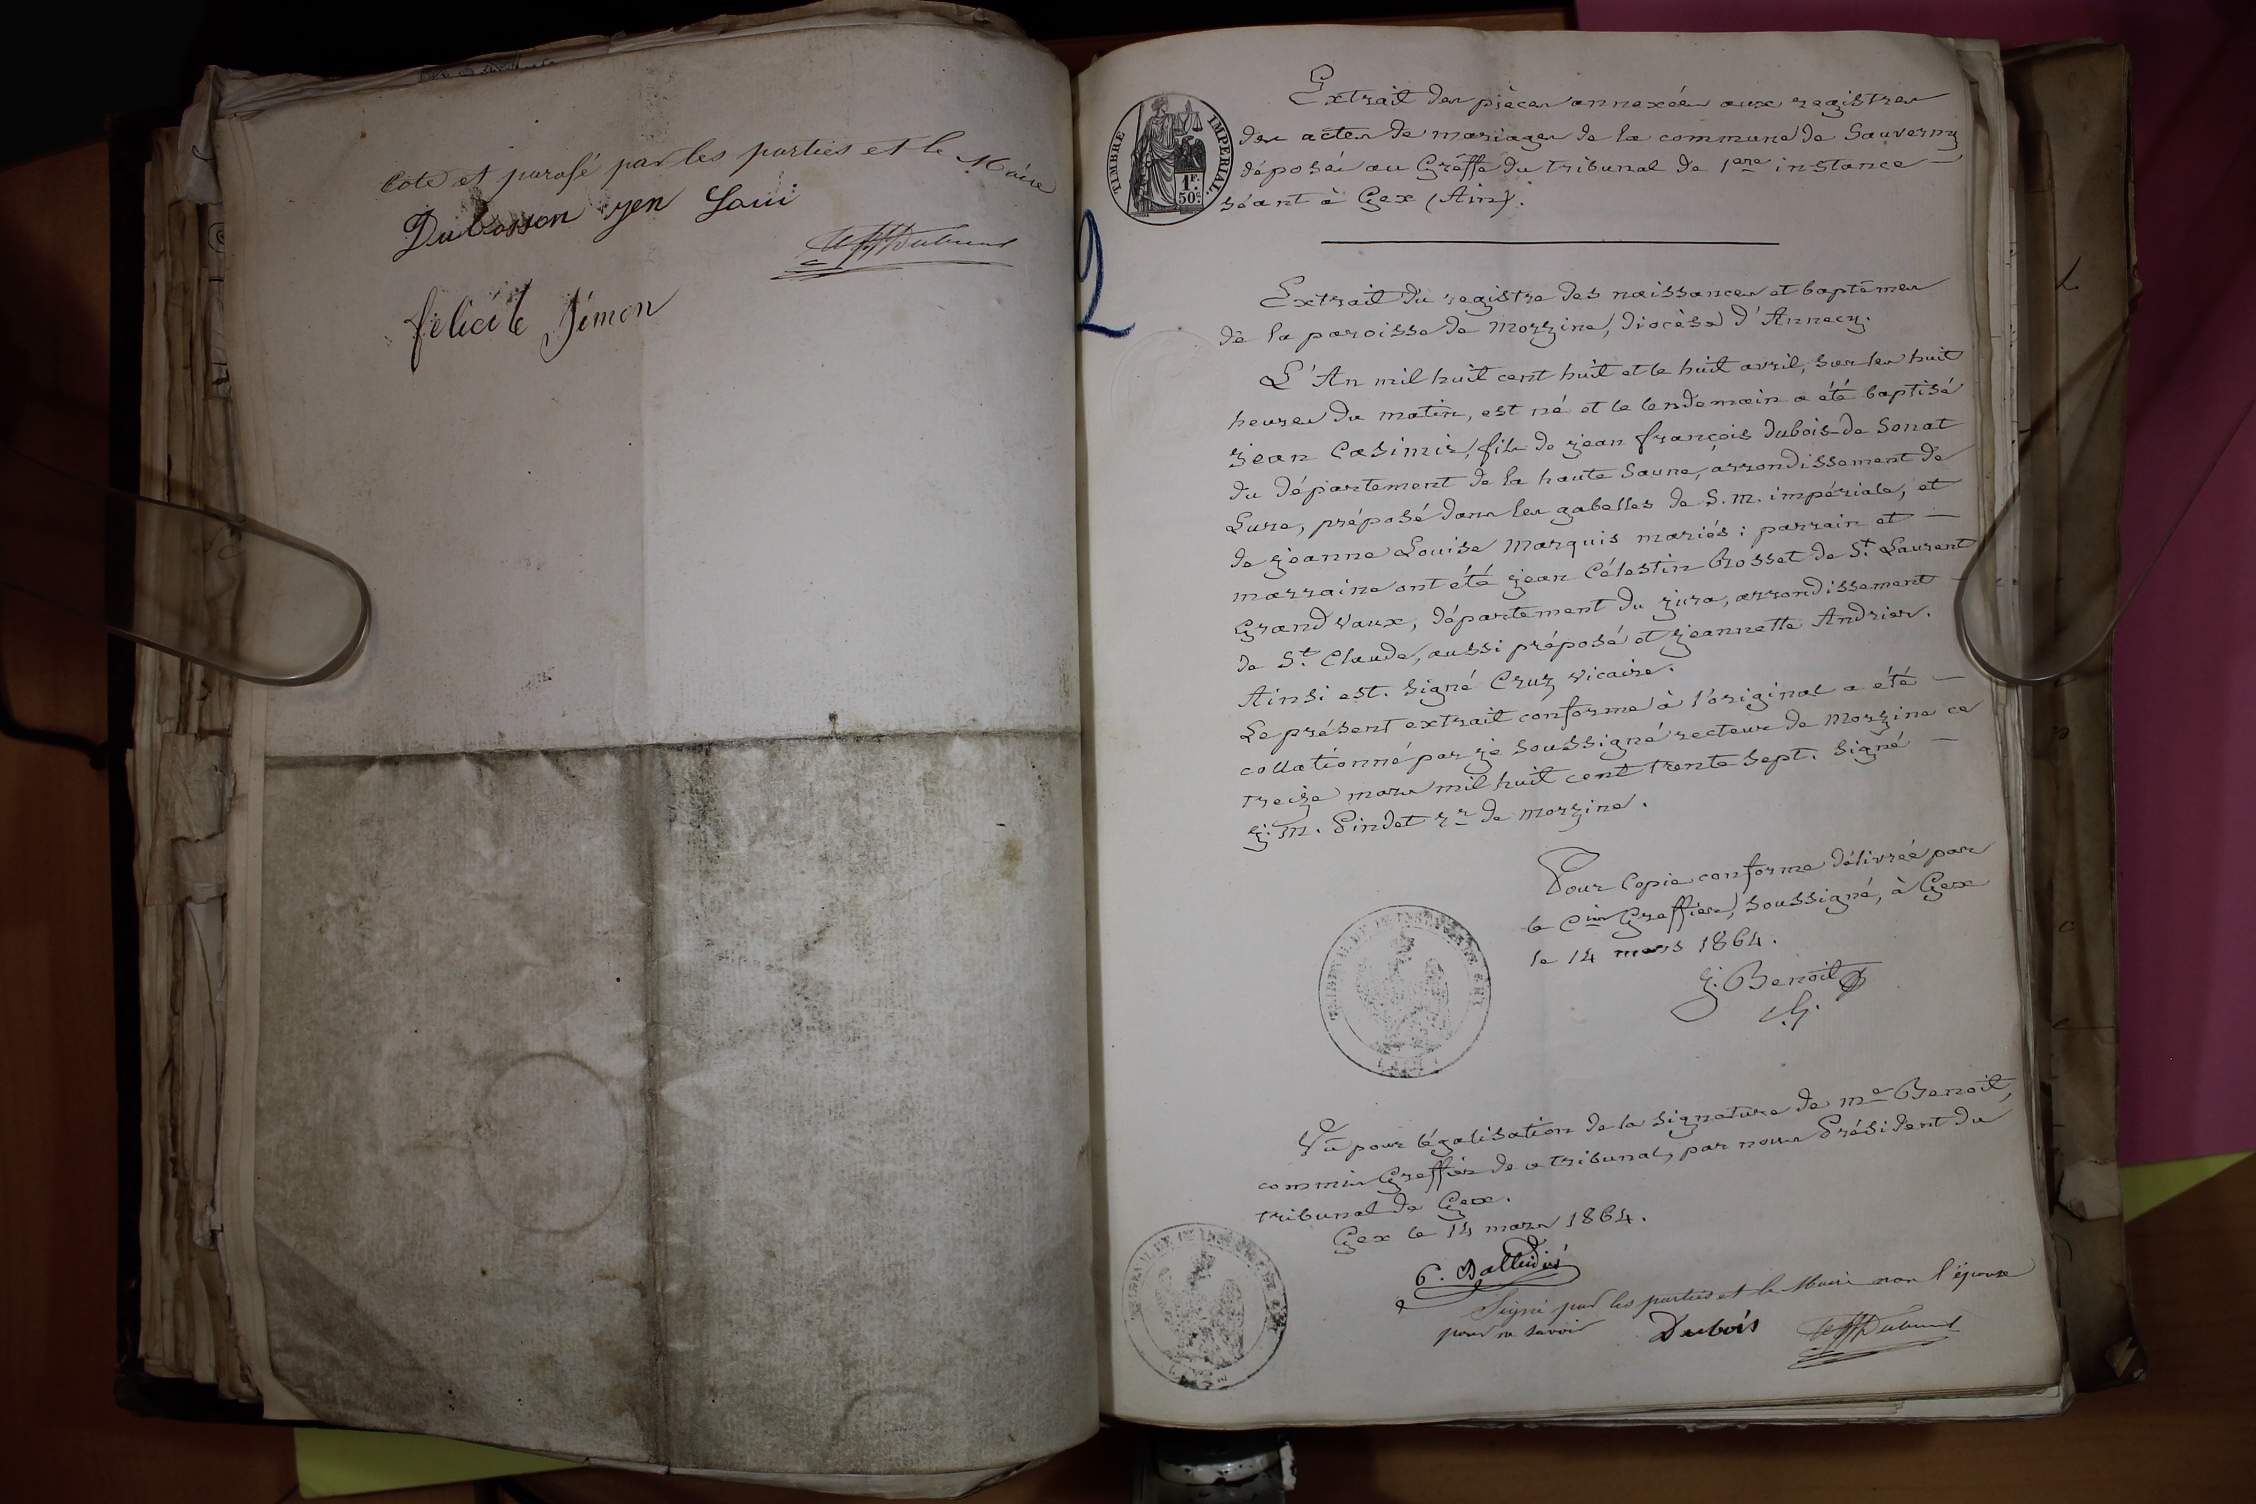 Coté et parafé par les parties et le Maire
Dubosson jen Loui
félicité Simon
TIMBRE IMPERIAL.
1F.
50c
2
Extrait des pièces annexées aux registres
des actes de mariages de la commune de Sauverny
déposés au Greffe du tribunal de 1ère instance —
séant à Gex (Ain).
Extrait du registre des naissances et baptêmes
de la paroisse de Morzine, diocèse d'Annecy.
L'An mil huit cent huit et le huit avril, sur les huit
heures du matin, est né et le lendemain a été baptisé
jean Casimir, fils de jean françois dubois de Sonat
du département de la haute Saune, arrondissement de
Lure, préposé dans les gabelles de S. m. impériale, et
de jeanne Louise Marquis mariés : parrain et —
marraine ont été jean Célestin Rosset de St Laurent
Grand Vaux, département du jura, arrondissement —
de St Claude, aussi préposé et jeannette Andrier.
Ainsi est. Signé Cruz vicaire.
Le présent extrait conforme à l'original a été —
collationné par je soussigné recteur de Morzine ce
treize mars mil huit cent trente sept. Signé —
j. m. Pindet rr de morzine.
Pour Copie conforme délivrée par
le Cis Greffier, soussigné, à Gex
le 14 mars 1864.
j. Benoit
c. g.
TRIBUNAL DE 1RE INSTANCE GEX
(AIN)
Vu pour légalisation de la signature de me Benoit,
commis Greffier de ce tribunal, par nous Président du
tribunal de Gex.
Gex le 14 mars 1864.
TRIBUNAL DE 1RE INSTANCE GEX
Signé par les parties et le Maire non l'épouse
pour ne savoir
Dubois